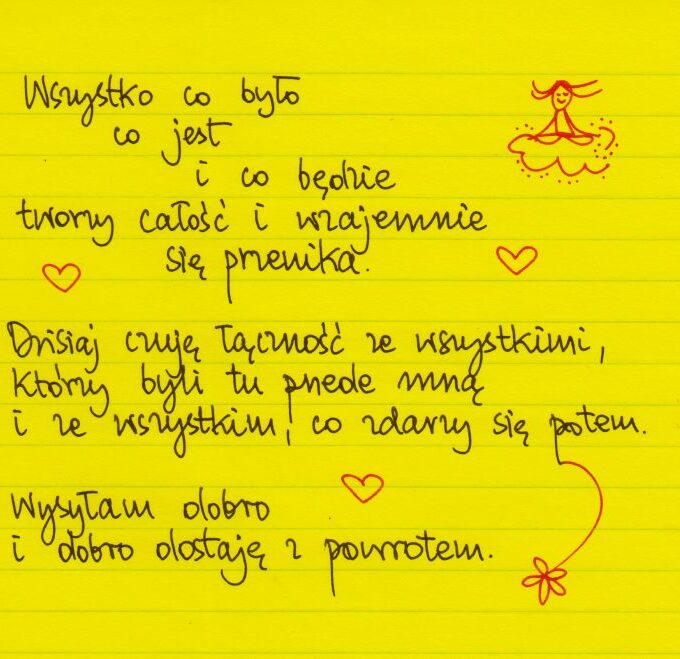 Wszystko co było
co jest
i co będzie
tworzy całość i wzajemnie
się przenika.
Dzisiaj czuję łączność ze wszystkimi,
którzy byli tu przede mną
i ze wszystkim, co zdarzy się potem.
Wysyłam dobro
i dobro dostaję z powrotem.